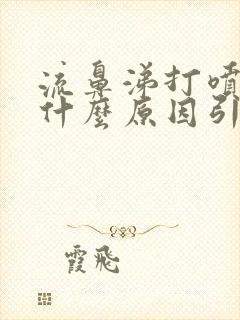 流鼻涕打噴
什麼原因引
霞飛